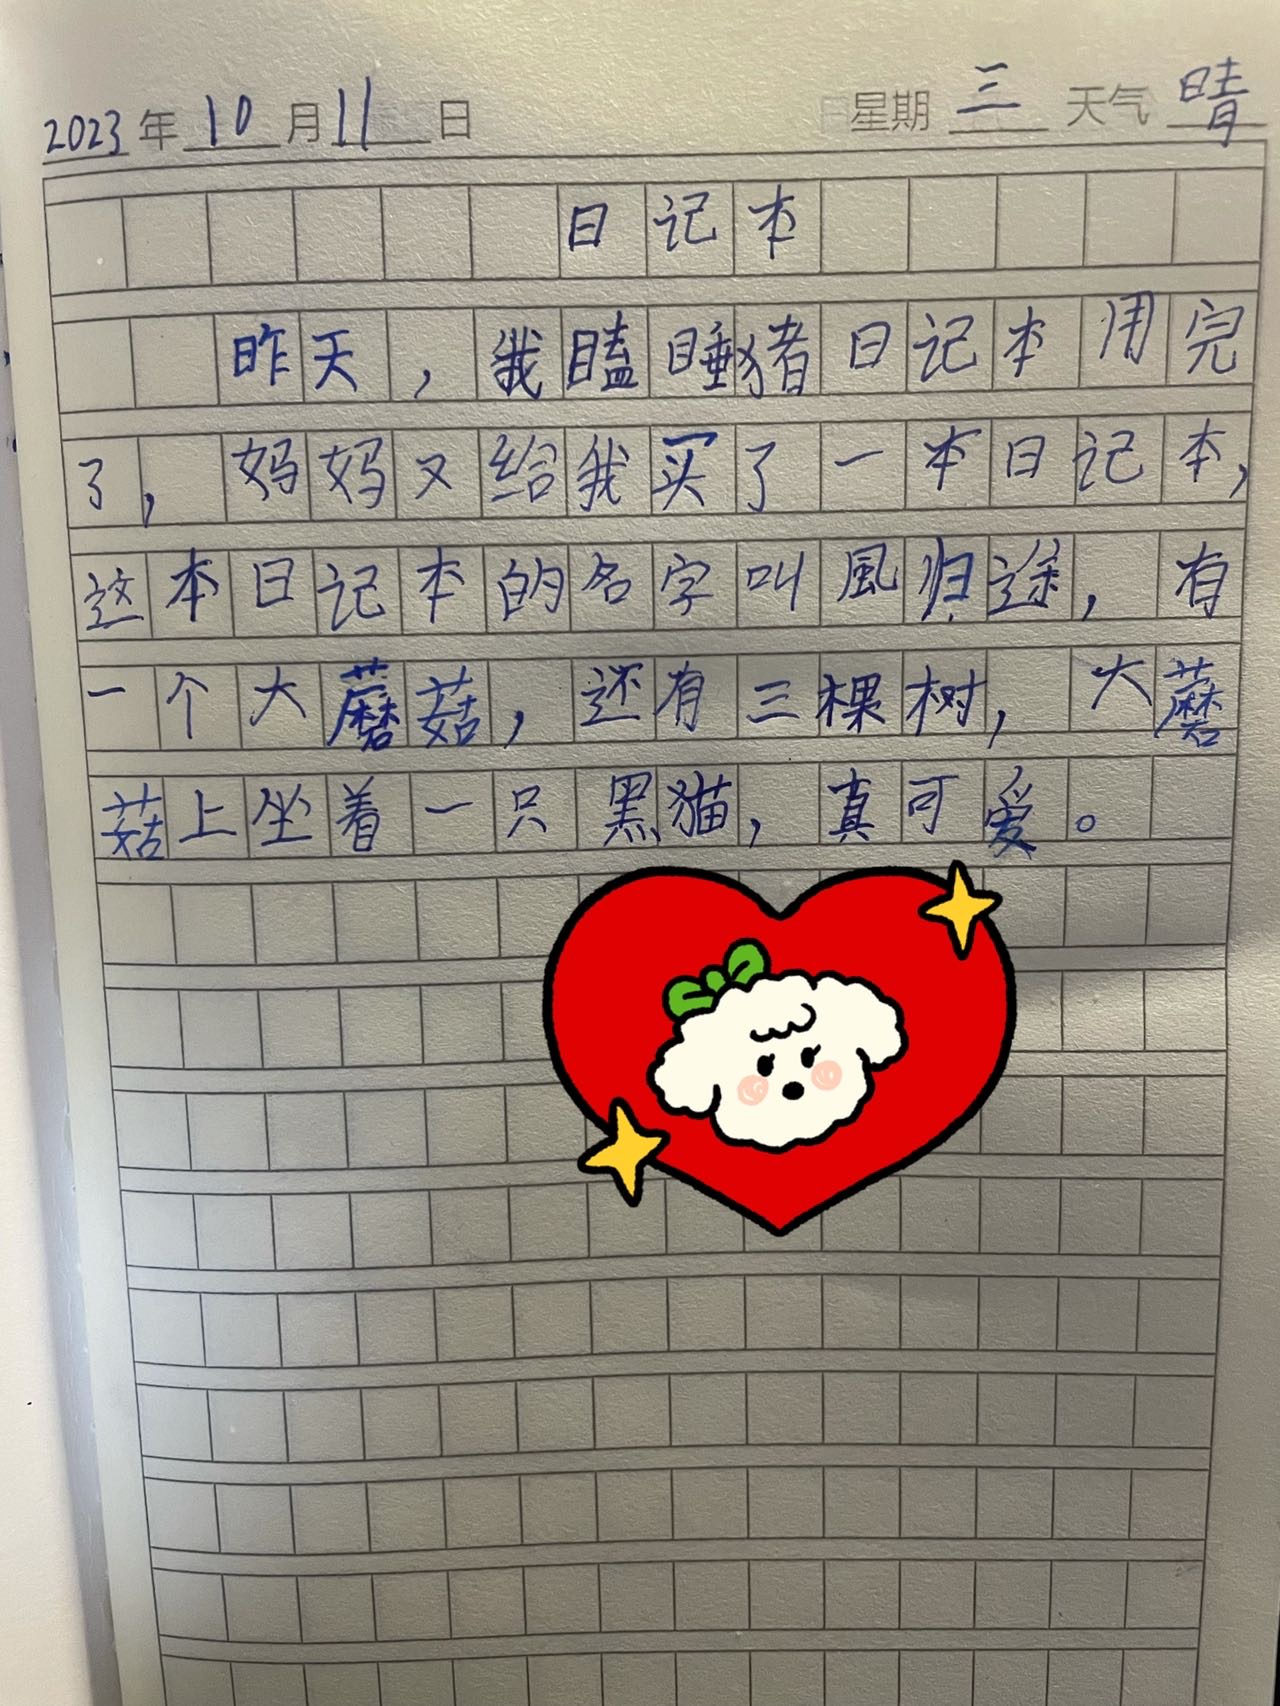 2023年10月11日 星期三 天气晴
日记本
昨天，我瞌睡猪日记本用完
了，妈妈又给我买了一本日记本，
这本日记本的名字叫風归途，有
一个大蘑菇，还有三棵树，大蘑
菇上坐着一只黑猫，真可爱。